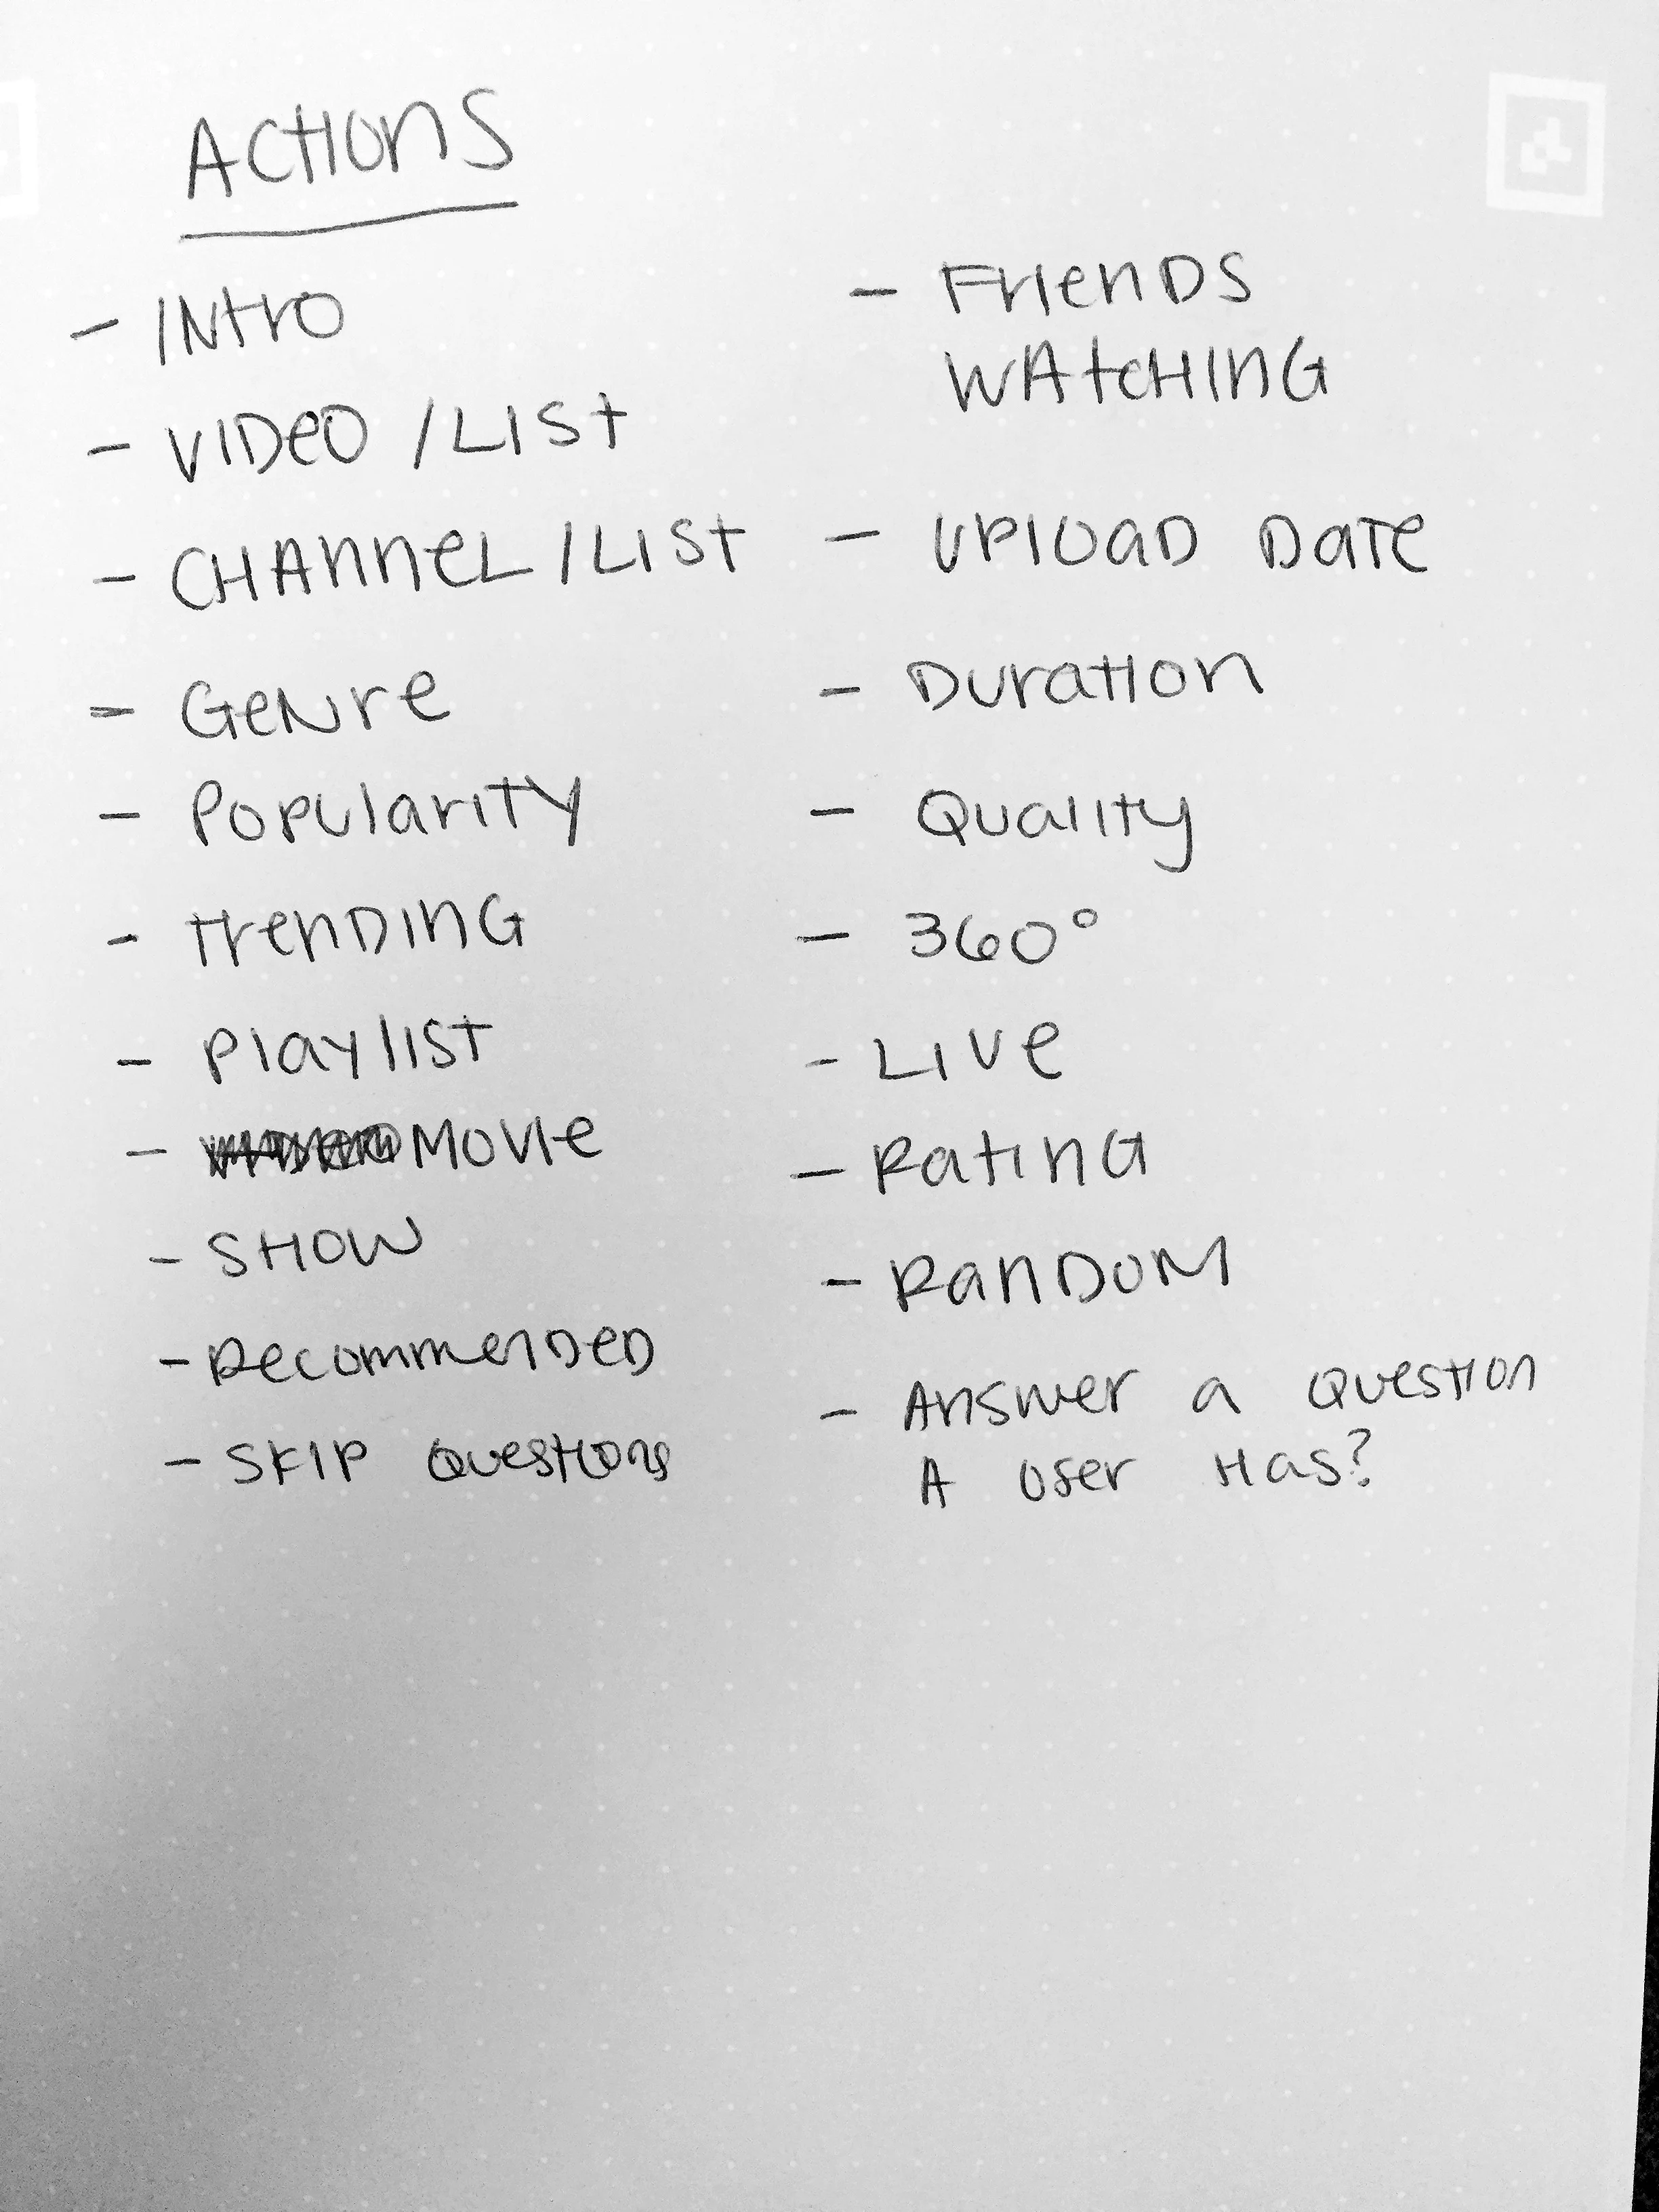 ACTIONS
- INTRO
- VIDEO / LIST
- CHANNEL / LIST
- GENRE
- POPULARITY
- TRENDING
- PLAYLIST
- MOVIE
- SHOW
- RECOMMENDED
- SKIP QUESTIONS
- FRIENDS
WATCHING
- UPLOAD DATE
- DURATION
- QUALITY
- 360°
- LIVE
- RATING
- RANDOM
- ANSWER A QUESTION
A USER HAS?